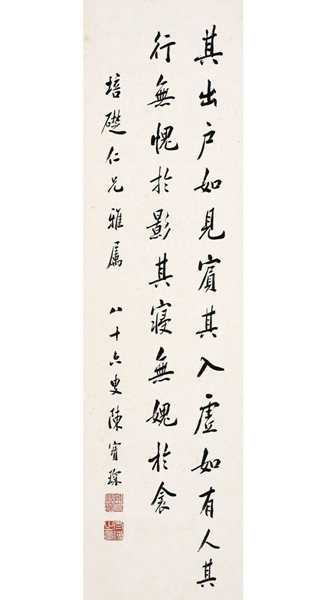 其出戶如見賓其入虛如有人其
行無愧於影其寢無媿於衾
培礎仁兄雅屬　八十六叟陳寶琛